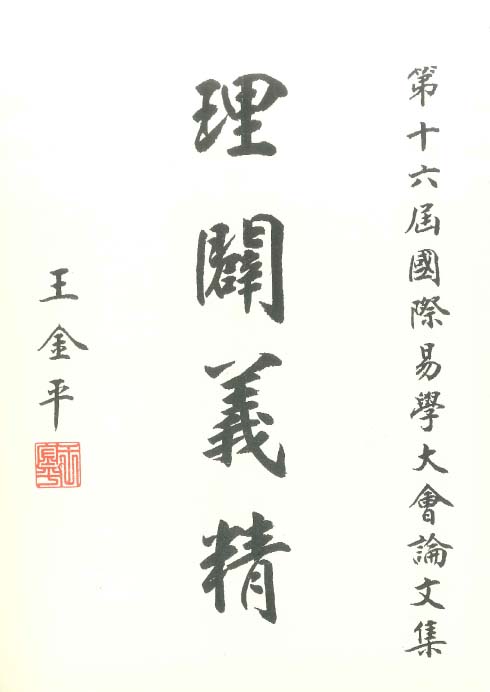 第十六屆國際易學大會論文集
理闢義精
王金平